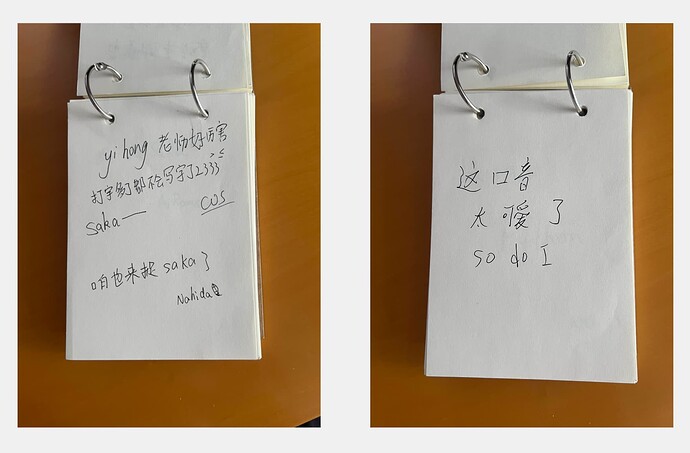 yihong 老师好厉害
打字多了都不会写字了2333
saka一
CWS
咱也来捉saka了
Nahida
这口音
太可爱了
so do I